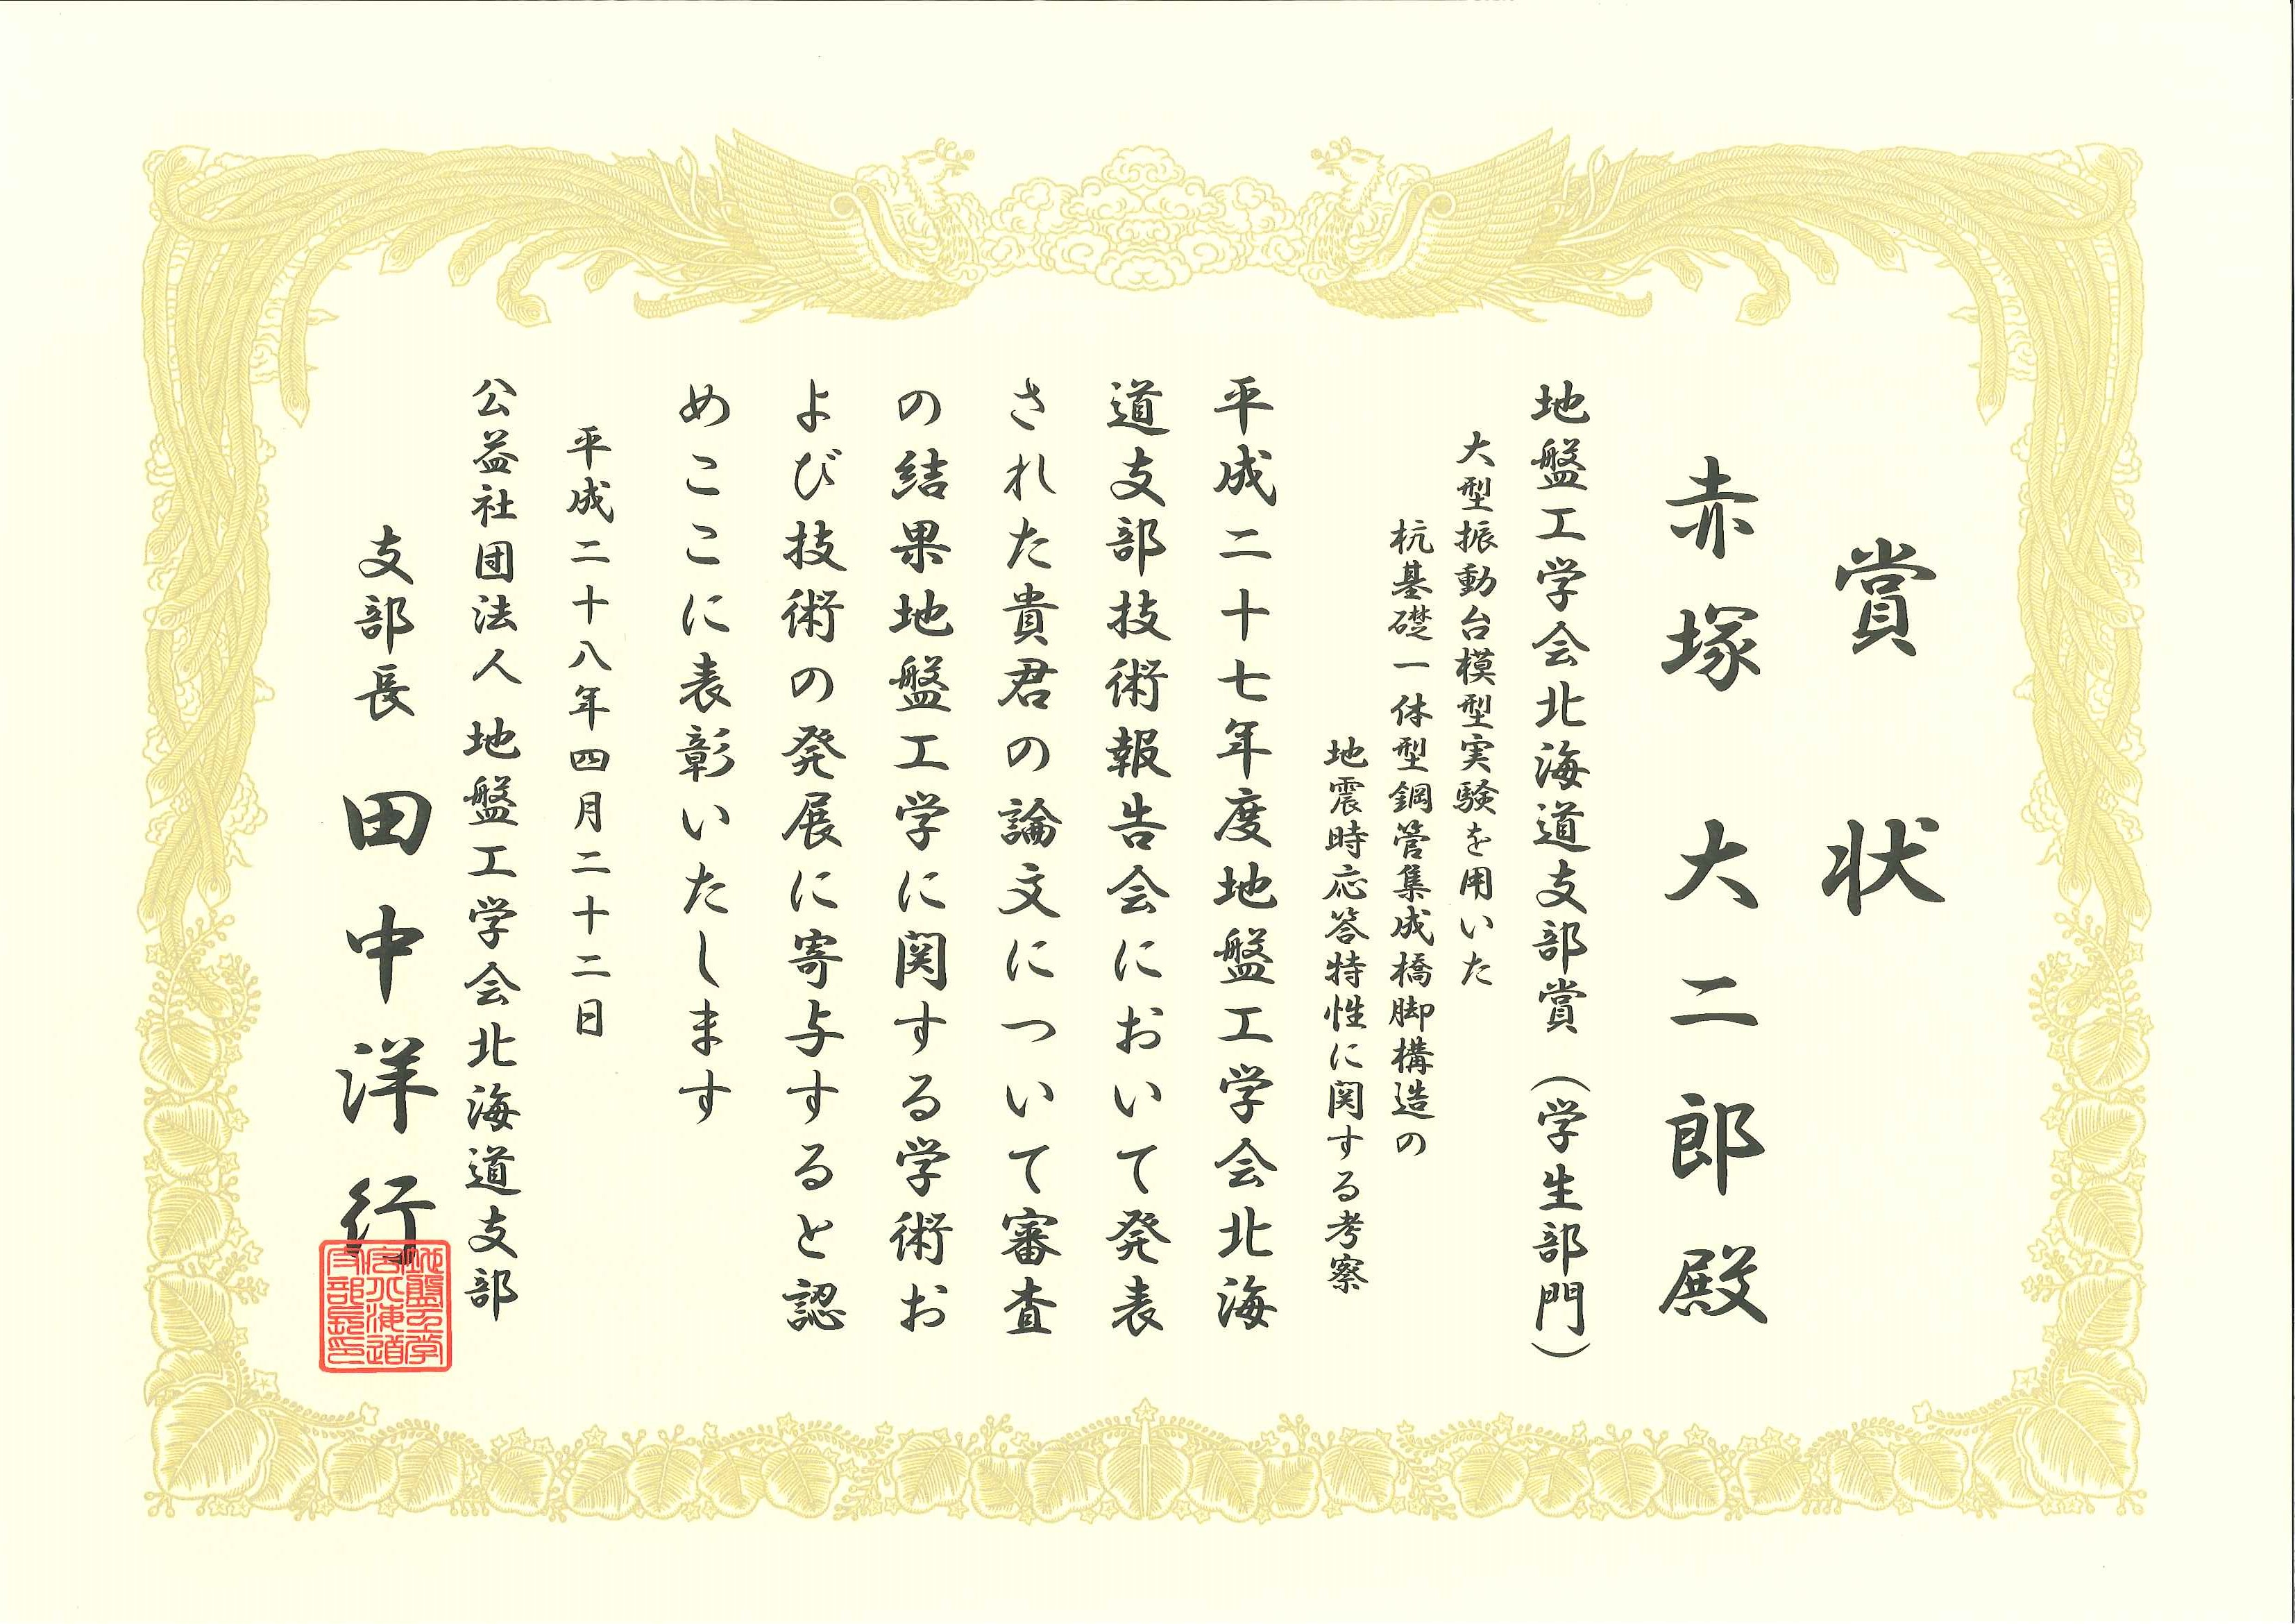 賞状
赤塚 大二郎 殿
地盤工学会北海道支部賞（学生部門）
大型振動台模型実験を用いた
杭基礎一体型鋼管集成橋脚構造の
地震時応答特性に関する考察
平成二十七年度地盤工学会北海
道支部技術報告会において発表
された貴君の論文について審査
の結果地盤工学に関する学術お
よび技術の発展に寄与すると認
めここに表彰いたします
平成二十八年四月二十二日
公益社団法人 地盤工学会北海道支部
支部長 田中洋行
地盤工学
会北海道
支部長印